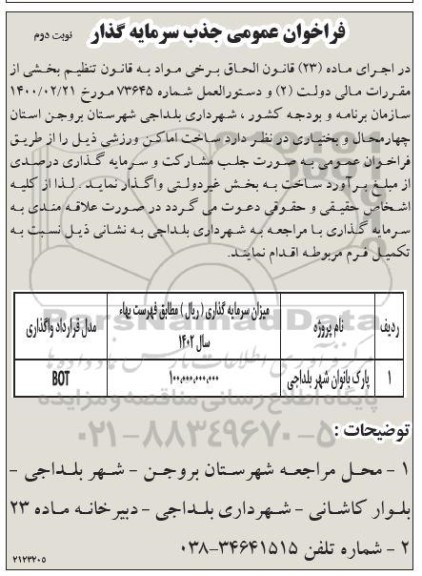 فراخوان عمومی جذب سرمایه گذار
نوبت دوم
در اجرای ماده (۲۳) قانون الحاق برخی مواد به قانون تنظیم بخشی از
مقررات مالی دولت (۲) و دستورالعمل شماره ۷۳۶۴۵ مورخ ۱۴۰۰/۰۲/۲۱
سازمان برنامه و بودجه کشور ، شهرداری بلداجی شهرستان بروجن استان
چهارمحال و بختیاری در نظر دارد ساخت اماکن ورزشی ذیل را از طریق
فراخوان عمومی به صورت جلب مشارکت و سرمایه گذاری درصدی
از مبلغ برآورد ساخت به بخش غیردولتی واگذار نماید . لذا از کلیه
اشخاص حقیقی و حقوقی دعوت می گردد در صورت علاقه مندی به
سرمایه گذاری با مراجعه به شهرداری بلداجی به نشانی ذیل نسبت به
تکمیل فرم مربوطه اقدام نمایند.
ردیف نام پروژه میزان سرمایه گذاری ( ریال ) مطابق فهرست بهاء سال ۱۴۰۲ مدل قرارداد واگذاری
۱ پارک بانوان شهر بلداجی ۱۰۰.۰۰۰.۰۰۰.۰۰۰ BOT
ParsNamadData
پایگاه اطلاع رسانی مناقصه و مزایده
۰۲۱-۸۸۳۴۹۶۷۰-۵
توضیحات :
۱ - محل مراجعه شهرستان بروجن - شهر بلداجی -
بلوار کاشانی - شهرداری بلداجی - دبیرخانه ماده ۲۳
۲ - شماره تلفن ۳۴۶۴۱۵۱۵-۰۳۸
۲۱۲۳۲۰۵